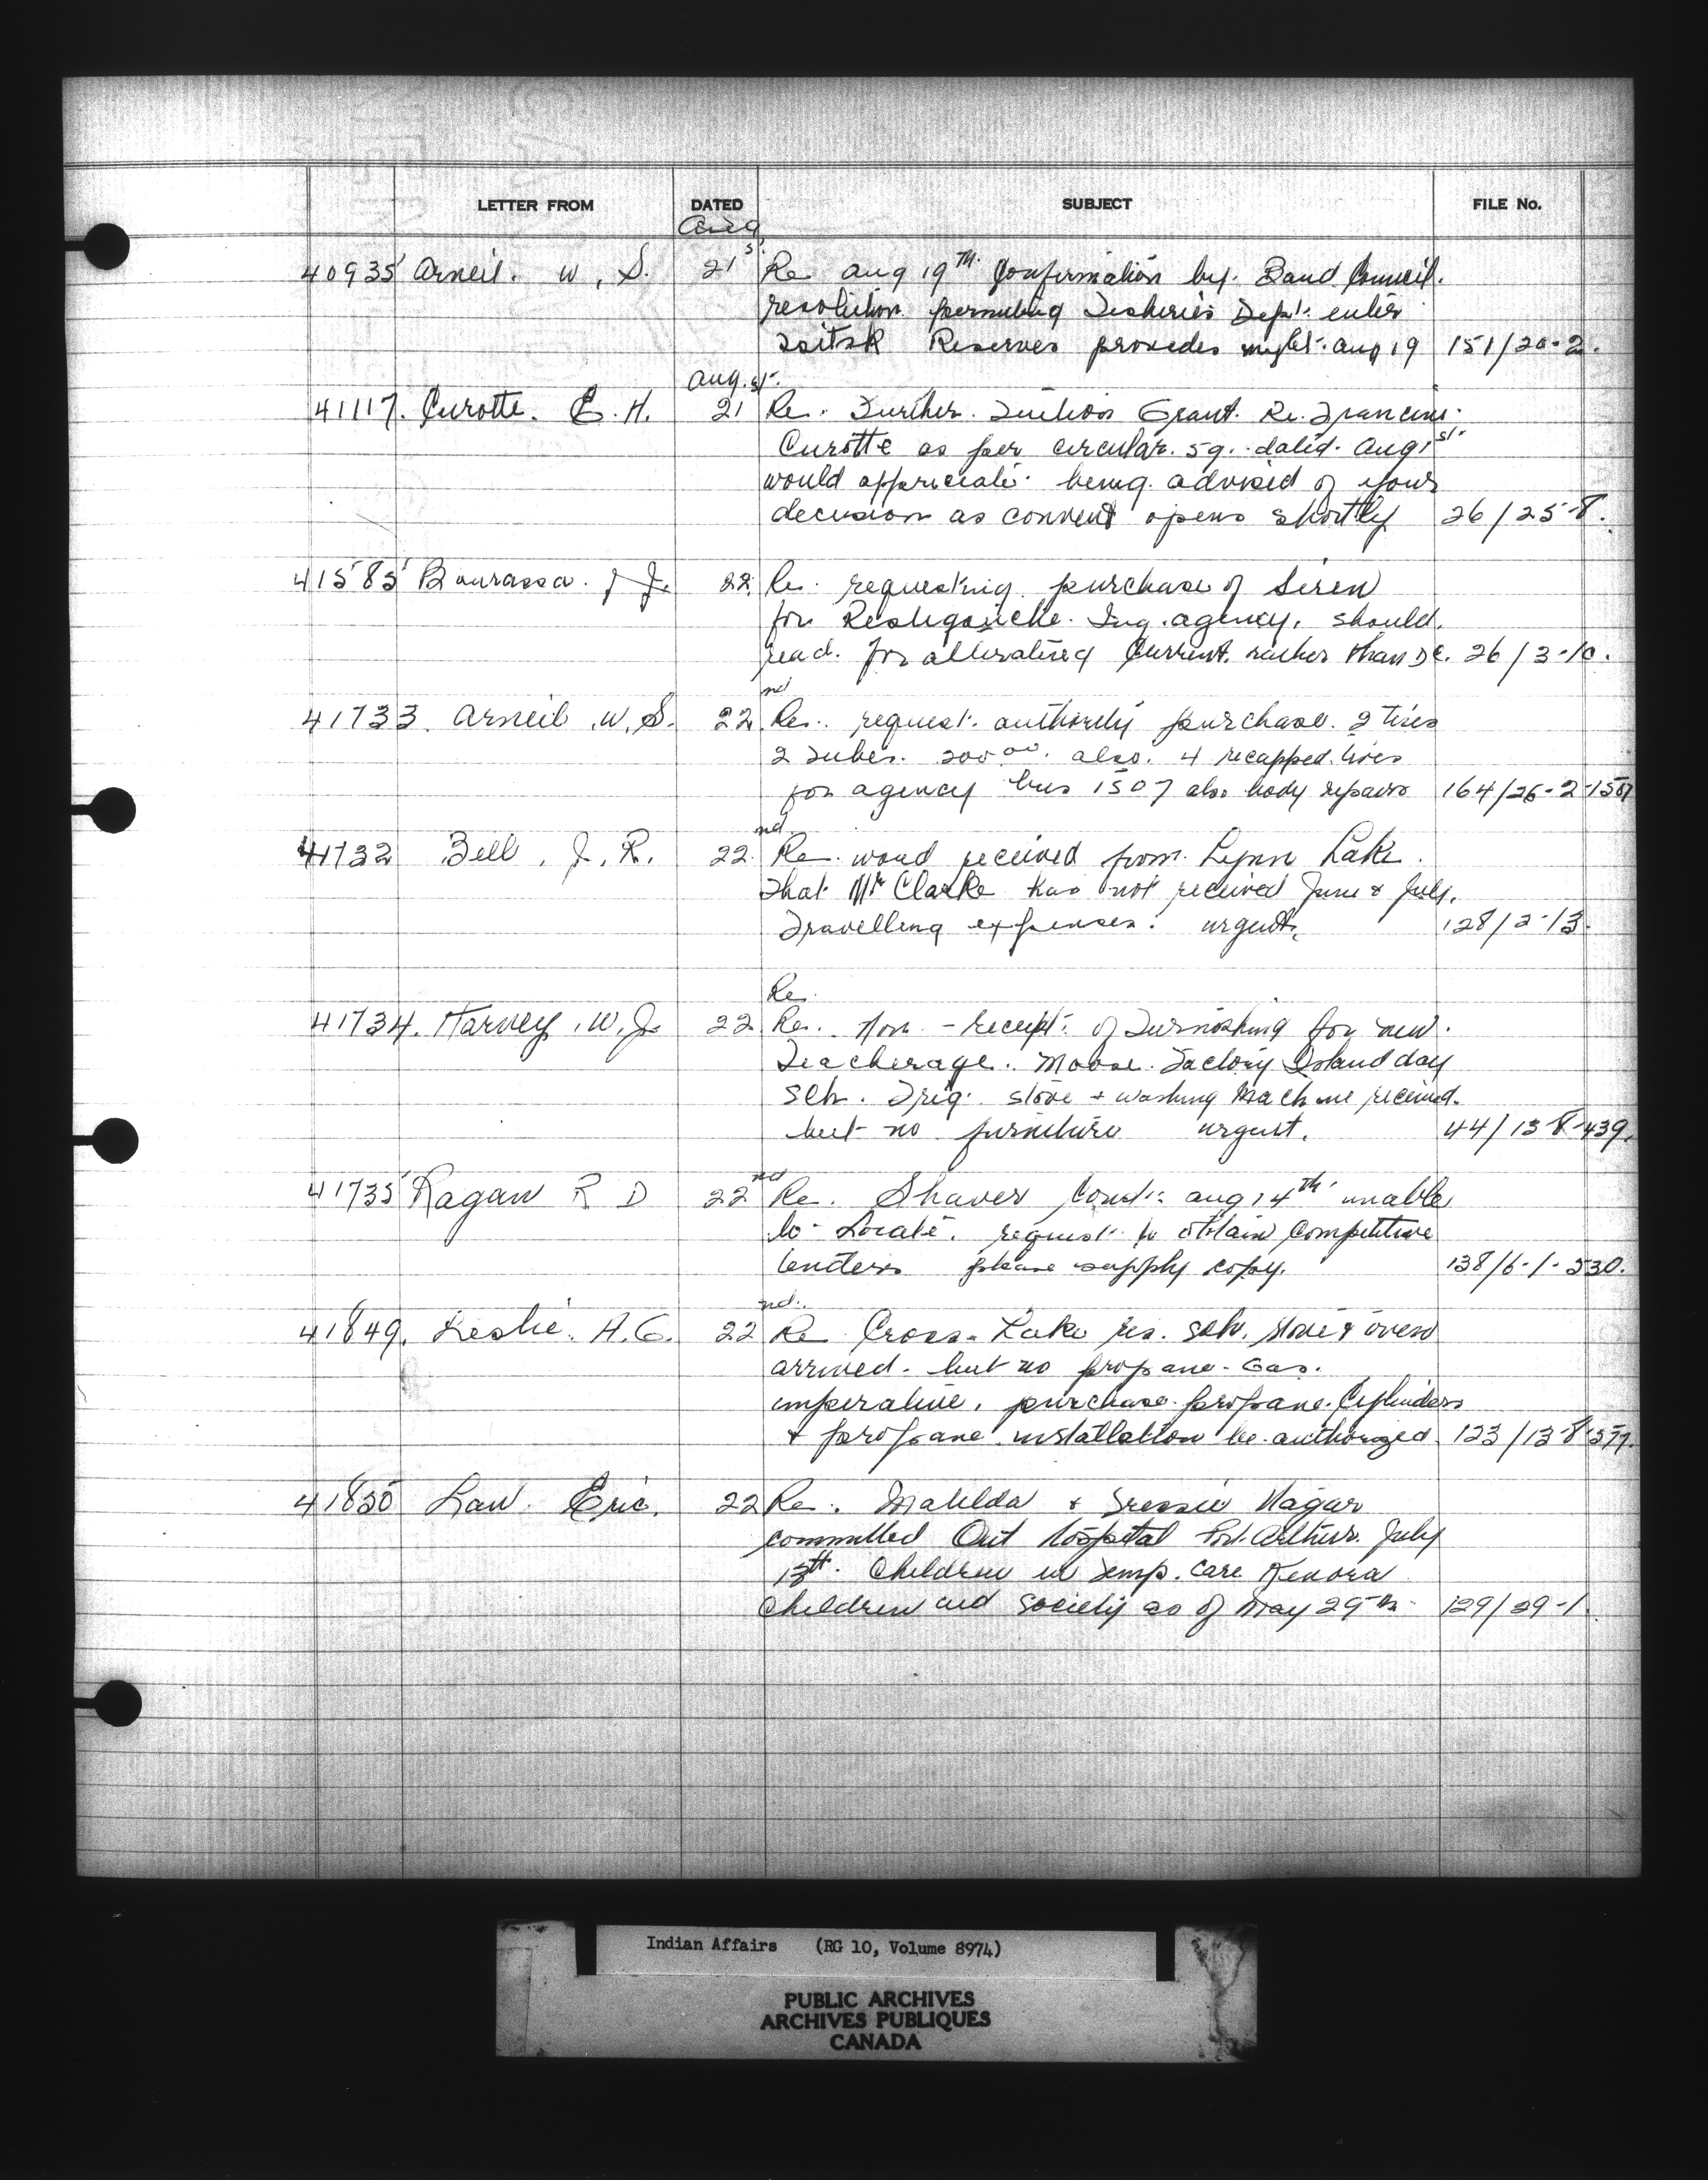 LETTER FROM DATED SUBJECT FILE No.
Aug
40935 Arneil. W. S. 21st Re Aug 19th Confirmation by Band Council.
resolution permitting Fisheries Dept. enter
Reserves provedes Aug 19 151/20-2.
Aug. st.
41117. Curotte. E. H. 21 Re. Further Tuition Grant. Re. Francine
Curotte as per circular. 59. dated. Aug 1st
would appreciate being advised of your
decision as convent opens shortly 26/25-8.
41585 Bourassa. J J. 22. Re. requesting purchase of Siren
for Restigouche. Ing. agency, should.
read. for alternating Current. rather than DC. 26/3-10.
nd
41733. Arneil W. S. 22. Re. request. authority purchase. 2 tires
2 Tubes. 200 00. also. 4 recapped. tires
for agency bus 1507 also body repairs 164/26-2-1507
nd.
41732 Bell, J. R. 22. Re. word received from Lynn Lake.
that Mr Clarke has not received June & July.
Travelling expenses. urgent. 128/2-13.
Re.
41734. Harvey, W. J. 22 Re. Non-receipt. of Furnishing for new.
Teacherage. Moose. Factory Island day
Sch. Frig. stove + washing Machine received.
but no furniture urgent. 44/13-8-439.
nd
41735 Ragan R D 22 Re. Shaver Const. Aug 14th unable
to Locate. request to obtain Competitive
tenders please supply copy. 138/6-1-530.
nd.
41849. Leslie. H. G. 22 Re Cross-Lake res. sch. stove & oven
arrived. but no propane-Gas.
imperative, purchase propane Cylinders
+ propane installation be authorized. 123/13-8-377.
41850 Law. Eric. 22 Re. Matilda + Hagar
committed Ont hospital Port. Arthur. July
13th. Children in Temp. Care Kenora
Children aid society as of May 29th 129/29-1.
Indian Affairs (RG 10, Volume 8974)
PUBLIC ARCHIVES
ARCHIVES PUBLIQUES
CANADA